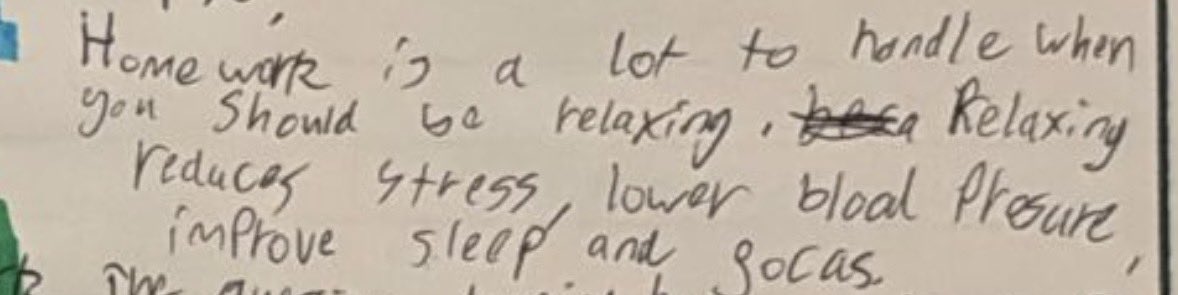 Homework is a lot to handle when
you should be relaxing. Relaxing
reduces stress, lower bload Presure,
improve sleep and gocas.
The